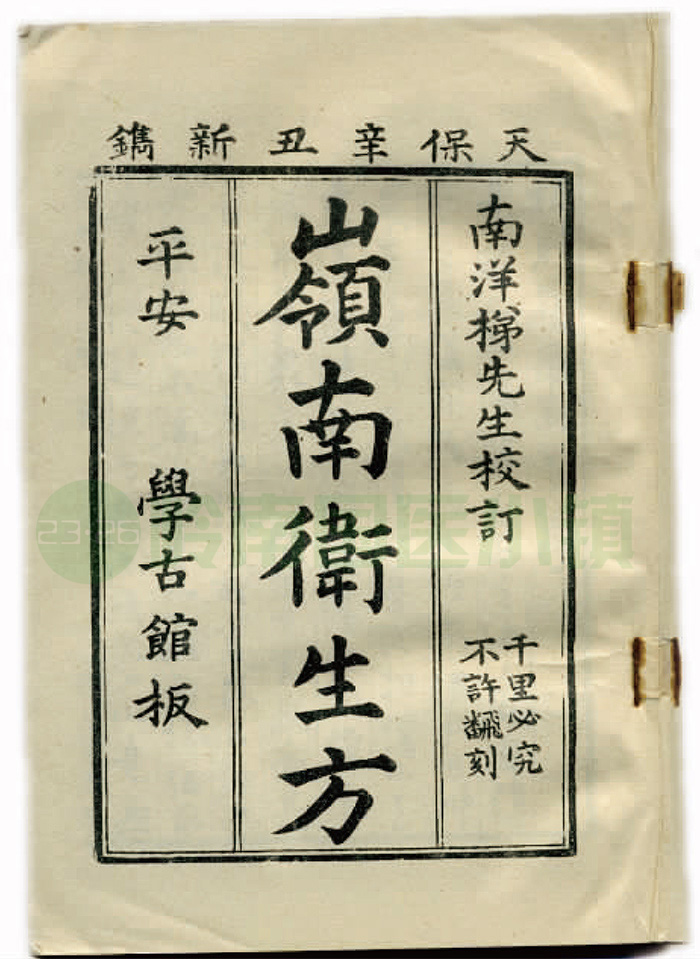 天保辛丑新鐫
南洋梯先生校訂
千里必究
不許飜刻
嶺南衛生方
平安 學古館板
23·26 岭南中医小镇